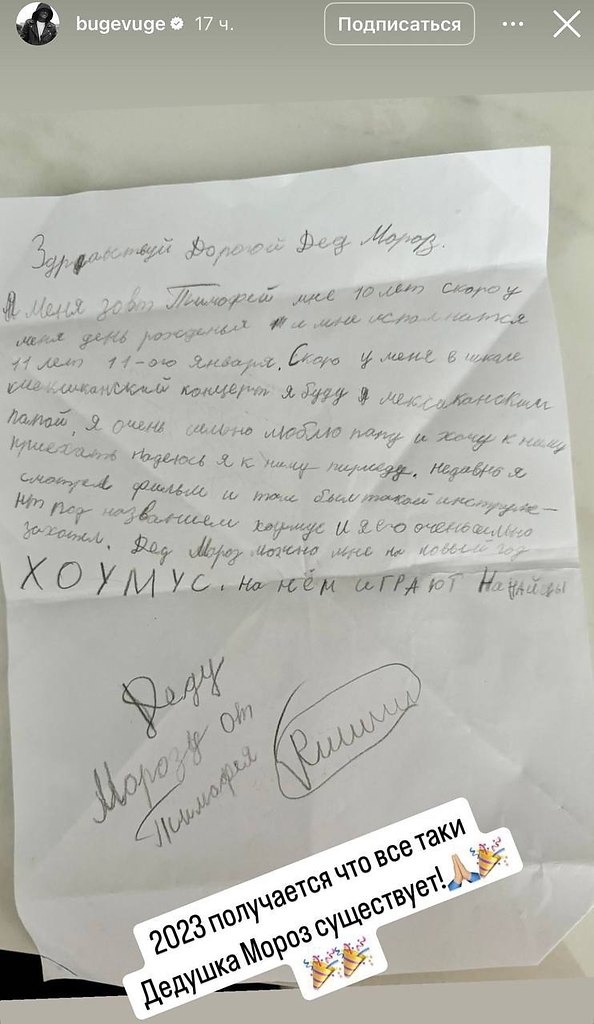 bugevuge 17 ч.
Подписаться
Здравствуй Дорогой Дед Мороз.
Меня зовт Тимофей мне 10 лет скоро у
меня день рожденья и мне исполнится
11 лет 11-ого Января. Скоро у меня в школе
мексиканский концерт я буду мексиканским
папой. Я очень сильно люблю папу и хочу к нему
приехать надеюсь я к нему перееду. недавно я
смотрел фильм и там был такой инструме-
нт под названием хоумус и я его очень сильно
захотел. Дед Мороз можно мне на новый год
ХОУМУС. на нём ИГРАЮТ Нанайцы
Деду
Морозу от
Тимофея
2023 получается что все таки
Дедушка Мороз существует!🙏🏼🎉
🎉🎉